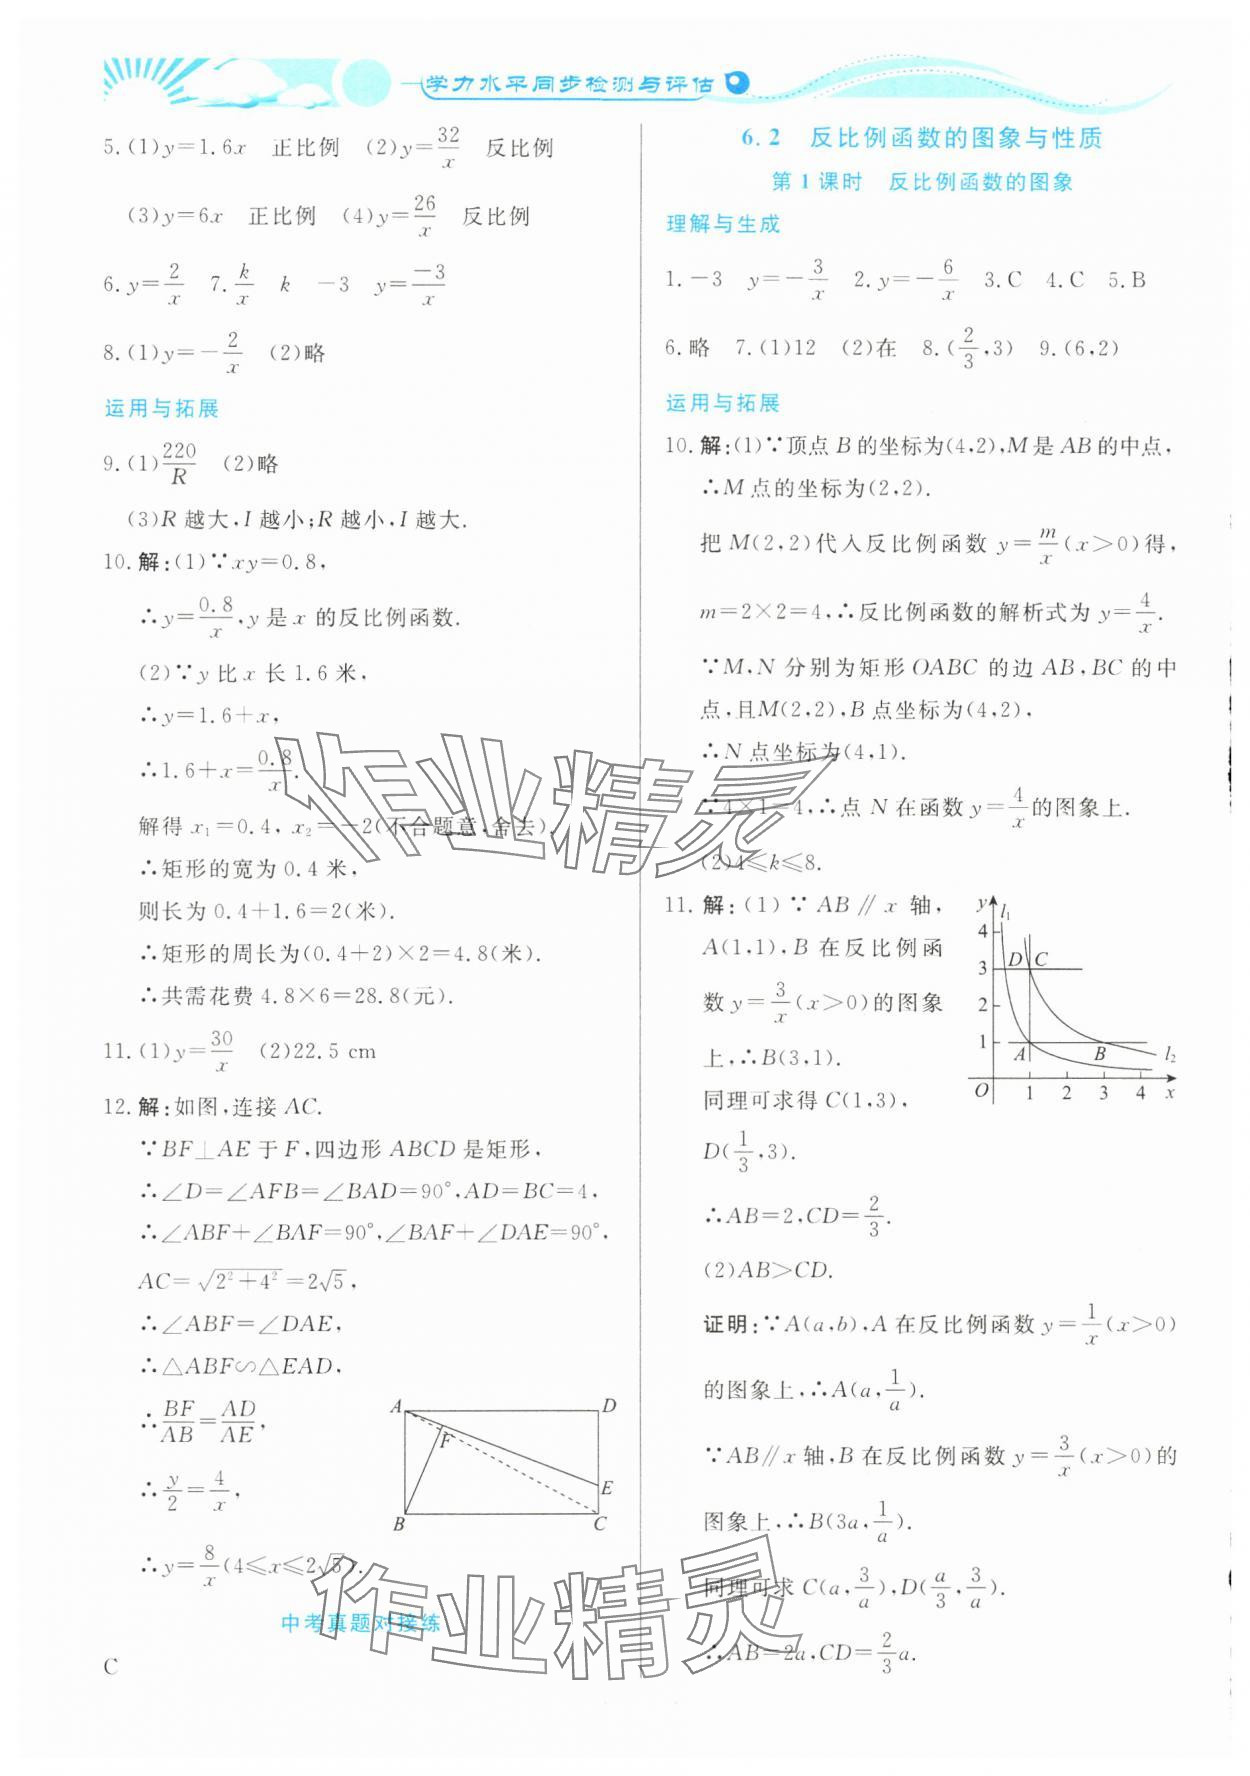 学力水平同步检测与评估
5.(1)y=1.6x 正比例 (2)y=32/x 反比例
(3)y=6x 正比例 (4)y=26/x 反比例
6.y=2/x 7.k/x k -3 y=-3/x
8.(1)y=-2/x (2)略
运用与拓展
9.(1)220/R (2)略
(3)R 越大,I 越小;R 越小,I 越大.
10.解:(1)∵xy=0.8,
∴y=0.8/x,y 是 x 的反比例函数.
(2)∵y 比 x 长 1.6 米,
∴y=1.6+x,
∴1.6+x=0.8/x.
解得 x₁=0.4,x₂=-2(不合题意,舍去),
∴矩形的宽为 0.4 米,
则长为 0.4+1.6=2(米).
∴矩形的周长为(0.4+2)×2=4.8(米).
∴共需花费 4.8×6=28.8(元).
11.(1)y=30/x (2)22.5 cm
12.解:如图,连接 AC.
∵BF⊥AE 于 F,四边形 ABCD 是矩形,
∴∠D=∠AFB=∠BAD=90°,AD=BC=4,
∴∠ABF+∠BAF=90°,∠BAF+∠DAE=90°,
AC=√(2²+4²)=2√5,
∴∠ABF=∠DAE,
∴△ABF∽△EAD,
∴BF/AB=AD/AE,
∴y/2=4/x,
∴y=8/x(4≤x≤2√5).
A D F E B C
中考真题对接练
C
6.2 反比例函数的图象与性质
第 1 课时 反比例函数的图象
理解与生成
1.-3 y=-3/x 2.y=-6/x 3.C 4.C 5.B
6.略 7.(1)12 (2)在 8.(2/3,3) 9.(6,2)
运用与拓展
10.解:(1)∵顶点 B 的坐标为(4,2),M 是 AB 的中点,
∴M 点的坐标为(2,2).
把 M(2,2)代入反比例函数 y=m/x(x>0)得,
m=2×2=4,∴反比例函数的解析式为 y=4/x.
∵M,N 分别为矩形 OABC 的边 AB,BC 的中
点,且M(2,2),B 点坐标为(4,2),
∴N 点坐标为(4,1).
∵4×1=4,∴点 N 在函数 y=4/x的图象上.
(2)4≤k≤8.
11.解:(1)∵AB∥x 轴,
A(1,1),B 在反比例函
数 y=3/x(x>0)的图象
上,∴B(3,1).
同理可求得 C(1,3),
D(1/3,3).
y l₁ 4 3 2 1 D C A B l₂ O 1 2 3 4 x
∴AB=2,CD=2/3.
(2)AB>CD.
证明:∵A(a,b),A 在反比例函数 y=1/x(x>0)
的图象上,∴A(a,1/a).
∵AB∥x 轴,B 在反比例函数 y=3/x(x>0)的
图象上,∴B(3a,1/a).
同理可求 C(a,3/a),D(a/3,3/a).
∴AB=2a,CD=2/3a.
作业精灵
作业精灵